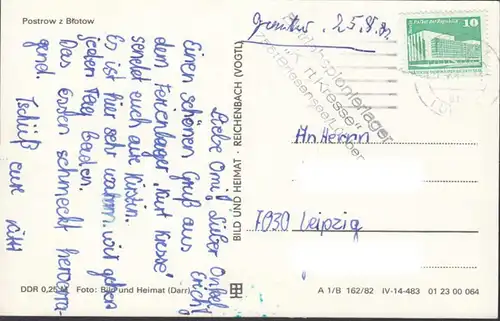 Postrow z Błotow
Liebe Omi, Lieber Onkel
Erich!
Einen schönen Gruß aus
dem Ferienlager "Kurt Kresse"
sendet euch eure Kirstin.
Es ist hier sehr warm. wir gehen
jeden Tag baden.
Das Essen schmeckt hervorra-
gend. Tschüß eure
DDR 0,25 M Foto: Bild und Heimat (Darr)
BILD UND HEIMAT · REICHENBACH (VOGTL)
25.8.82
10
"Kurt Kresse"
An Herrn
7030 Leipzig
A 1/B 162/82 IV-14-483 01 23 00 064